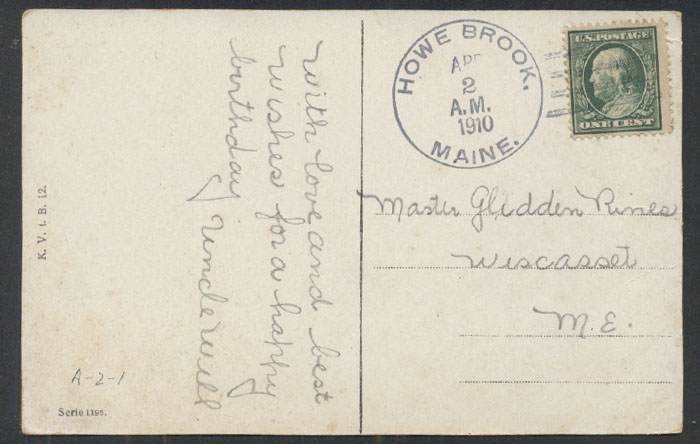 With love and best
wishes for a happy
birthday
Uncle Will.
HOWE BROOK.
APR
2
A.M.
1910
MAINE.
U.S. POSTAGE
ONE CENT
Master Glidden Rines
Wiscasset
M.E.
K. V. i. B. 12.
A-2-1
Serie 1195.